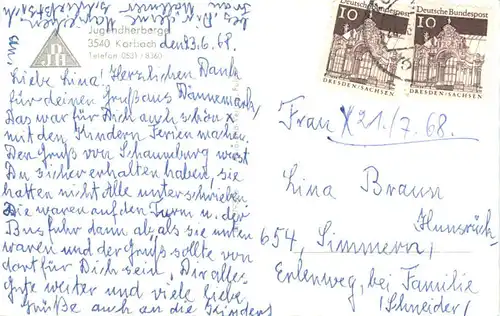 Jugendherberge
3540 Korbach, den 23.6.68.
Telefon 0531 / 8360
Liebe Lina! Herzlichen Dank
für deinen Gruß aus Dännemark,
Das war für Dich auch schön
mit den Kindern Ferien machen.
Den Gruß von Schaumburg wirst
Du sicher erhalten haben, sie
hatten nicht Alle unterschrieben,
Die waren auf den Turm u. der
Bus fuhr dann ab, als sie unten
waren und der Gruß sollte von
dort für Dich sein, Dir alles
Gute weiter und viele liebe
Grüße auch an die Kinder
Deutsche Bundespost
10
DRESDEN/SACHSEN
Deutsche Bundespost
10
DRESDEN/SACHSEN
Frau X 21./7.68.
Lina Braun
Hunsrück
654, Simmern,
Erlenweg, bei Familie
(Schneider)